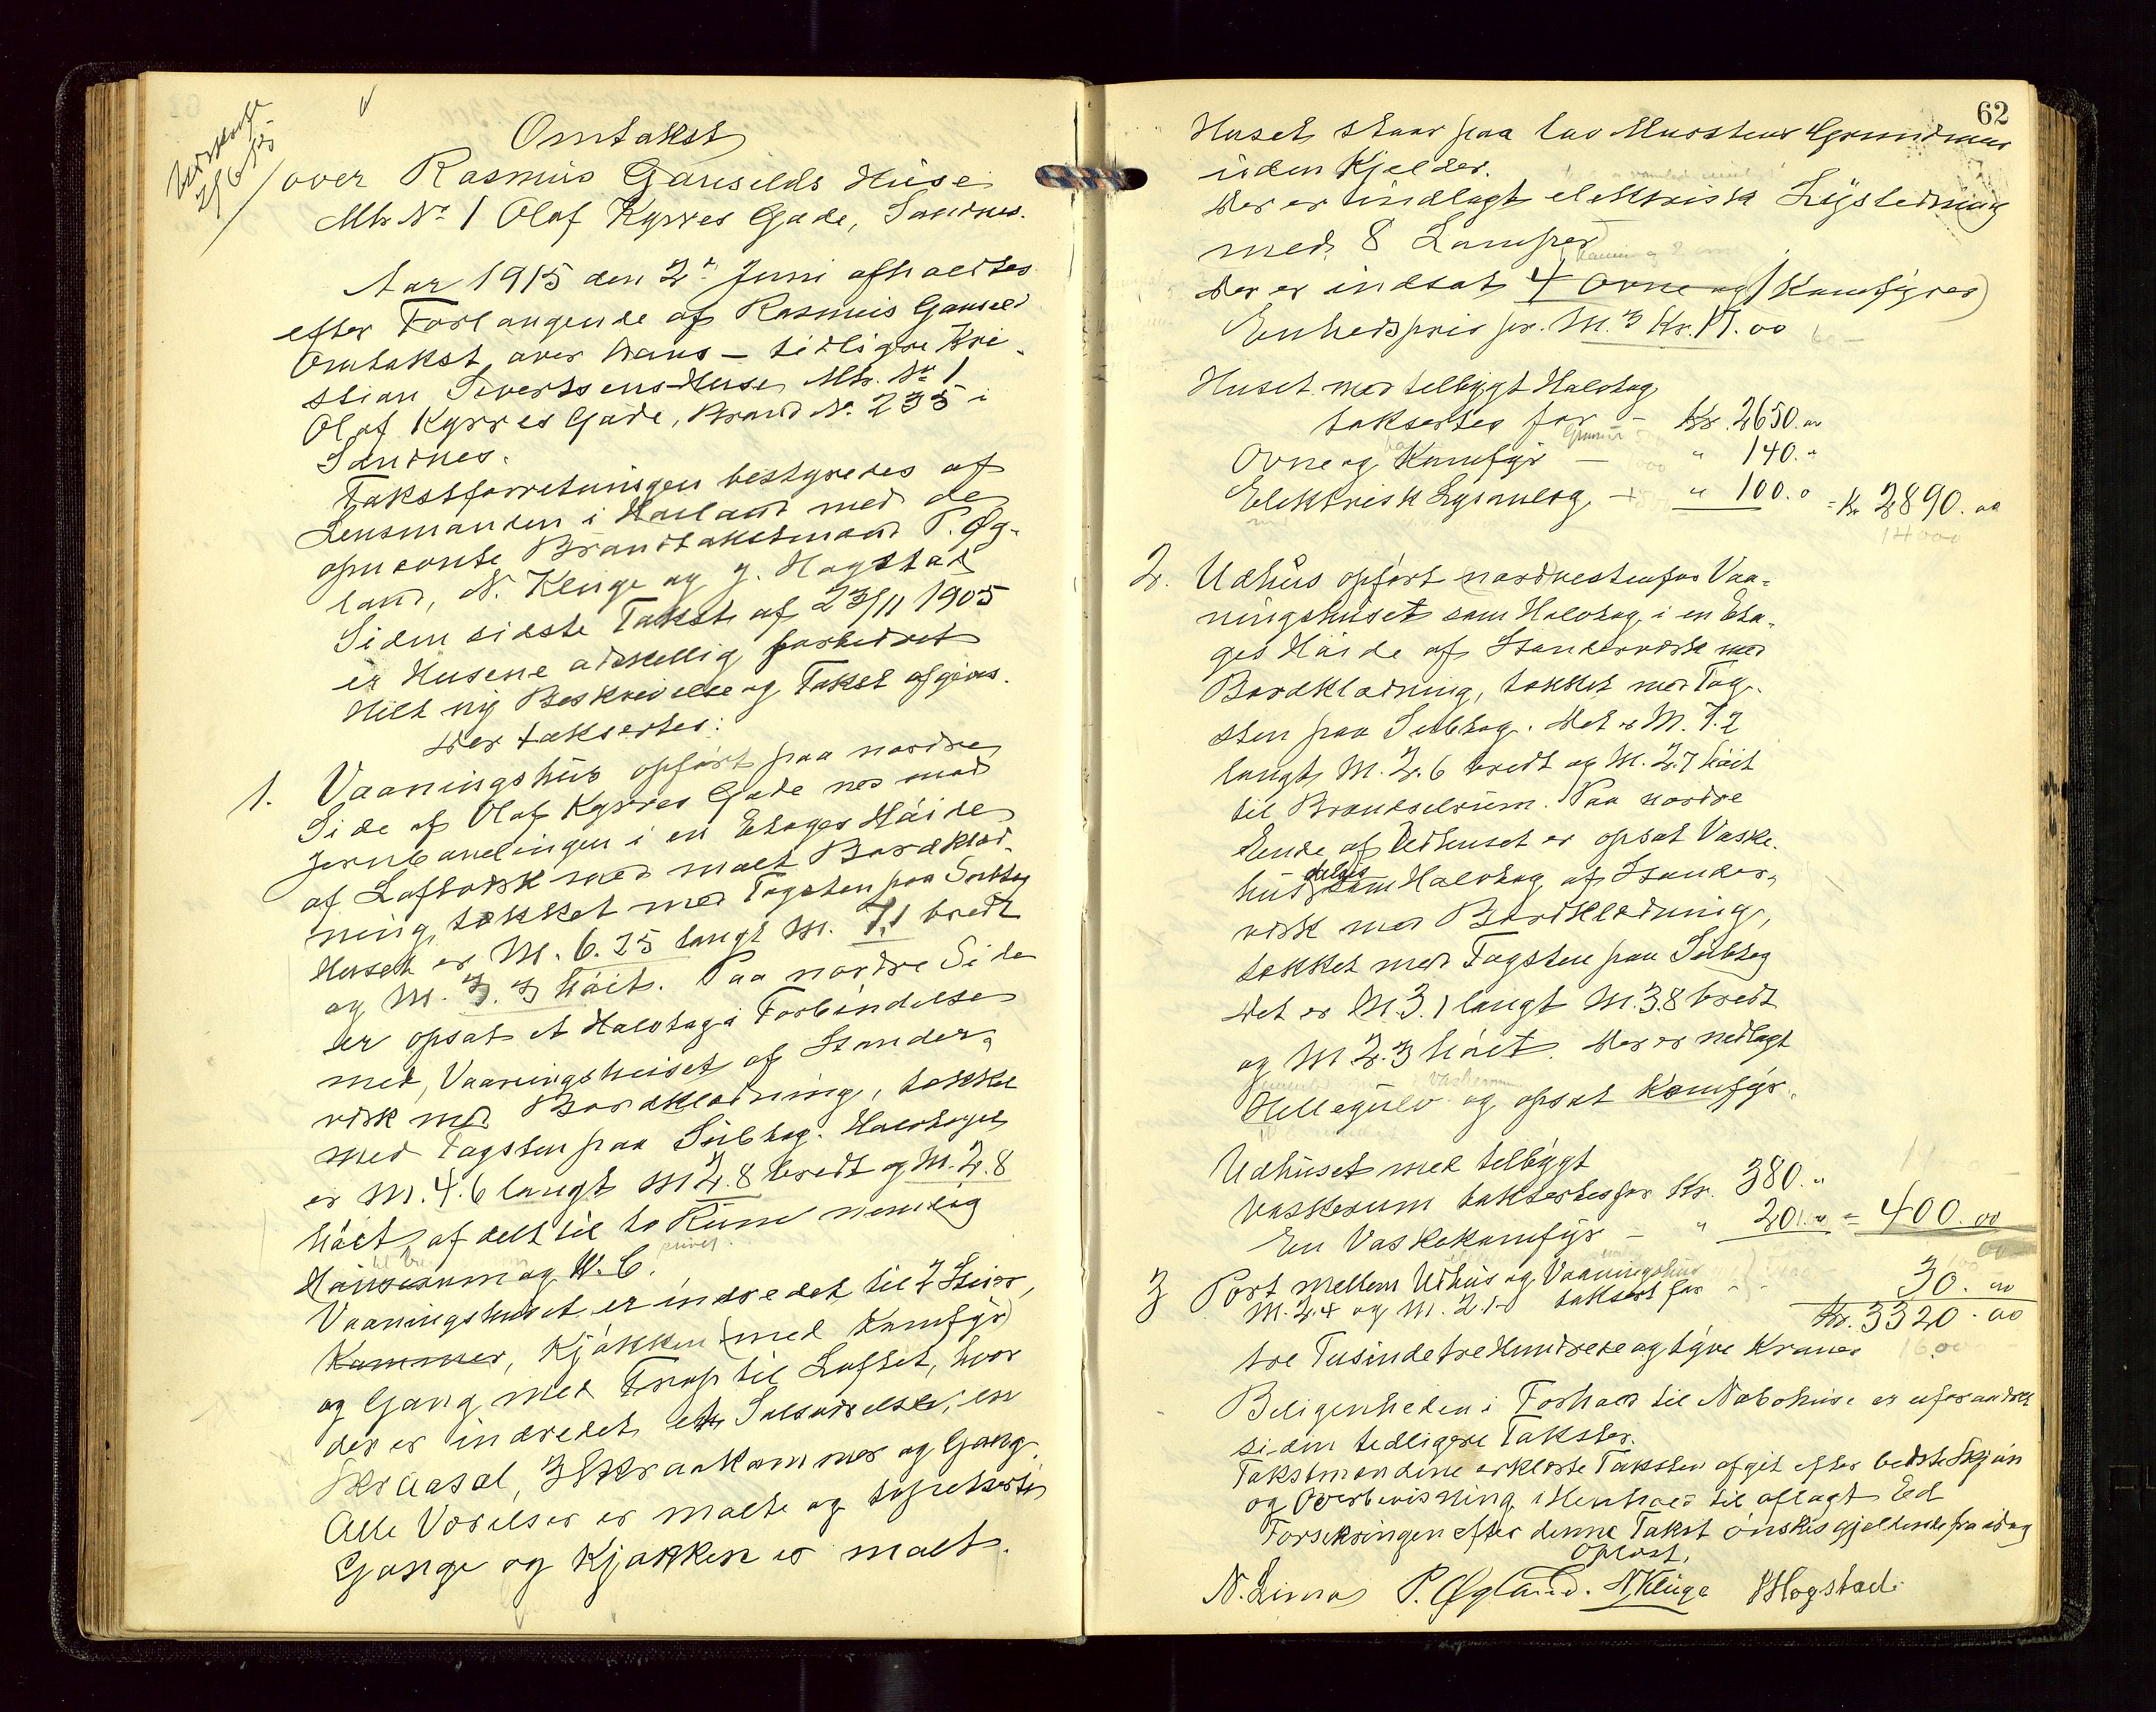 2/6 15
Omtakst
over Rasmus Gauselds Huse
Mtr. No 1 Olaf Kyrres Gade, Sandnes.
Aar 1915 den 2n Juni afholdtes
efter Forlangende af Rasmus Gauseld
Omtakst over hans – tidligere Kri-
stian Sivertsens Huse Mtr. No 1
Olaf Kyrres Gade, Brand No. 235 i
Sandnes.
Takstforretningen bestyredes af
Lensmanden i Høiland med de
opnævnte Brandtakstmænd P. Øg-
land, N. Kluge og J. Hogstad
Siden sidste Takst af 23/11 1905
er Husene adskellig forbedret
Hilt ny Beskrivelse og Takst afgives.
Der taksertes:
1. Vaaningshus opført paa nordre
Side af Olaf Kyrres Gade ned mod
Jernbanelinjen i en Etages Høide
af Loftværk med malt Bordklæd-
ning, tækket med Tagsten paa Subtag
Huset er M. 6.25 langt M. 7.1 bredt
og M. 3.3 høit. Paa nordre Side
er opsat et Halvtag i Forbindelse
med Vaaningshuset af Stander-
værk med Bordklædning, tækket
med Tagsten paa Subtag. Halvtaget
er M. 4.6 langt M 2.8 bredt og M. 2.8
høit, af delt til to Rum nemlig
og W. C.
Vaaningshuset er indredet til 2 Stuer,
Kammer, Kjøkken (med Kamfyr)
og Gang med Trap til Loftet, hvor
der er indredet et Salsværelse, en
Skraasal, 3 Skraakammer og Gang.
Alle Værelser er malte og tapetserte
Gange og Kjøkken er malt.
62
Huset staar paa lav Murstens Grundmur
uden Kjelder.
Der er indlagt elektrisk Lysledning
med 8 Lamper
Der er indsat 4 Ovne og 1 Kamfyrer)
Enhedspris pr. M.3 Kr. 17.00
Huset med tilbygt Halvtag
taksertes for – Kr. 2650.00
Ovne og Kamfyr – " 140."
Elektrisk Lysanlæg – " 100.0 = Kr 2890.00
14000
2. Udhus opført nordvestenfor Vaa-
ningshuset som Halvtag i en Eta-
ges Høide af Standerværk med
Bordklædning, tækket med Tag-
sten paa Subtag. Det er M. 7.2
langt M. 2.6 bredt og M. 2.7 høit
til Brændselrum. Paa nordre
Ende af Udhuset er opsat Vaske-
hus delvis som Halvtag af Stander-
værk med Bordklædning,
tækket med Tagsten paa Subtag
Det er M. 3.1 langt M. 3.8 bredt
og M 2.3 høit. Der er nedlagt
Hellegulv og opsat Kamfyr.
Udhuset med tilbygt
Vaskerum taksertes for Kr. 380."
En Vaskekamfyr – " 20.00 = 400.00
3 Port mellem Udhus og Vaaningshus
M. 2.4 og M. 2.1 taksert for 30.00
Kr. 3320.00
tre Tusinde tre Hundrede og tyve Kroner
Beligenheden i Forhold til Nabohuse er uforandret
siden tedligere Takster.
Takstmændene erklærte Taksten afgit efter bedste Skjøn
og Overbevisning i Henhold til aflagt Ed
Forsikringen efter denne Takst ønskes gjeldende fra idag
Oplæst.
N. Lima P. Øgland. N. Kluge J Hogstad